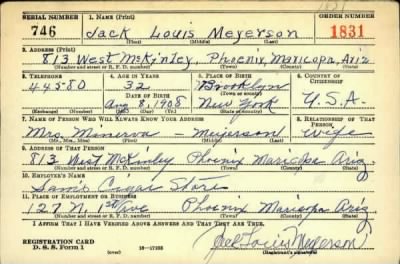 1831
SERIAL NUMBER 1. NAME (Print) ORDER NUMBER
746 Jack Louis Meyerson 1831
(First) (Middle) (Last)
2. ADDRESS (Print)
813 West McKinley, Phoenix, Maricopa, Ariz.
(Number and street or R. F. D. number) (Town) (County) (State)
3. TELEPHONE 4. AGE IN YEARS 5. PLACE OF BIRTH 6. COUNTRY OF CITIZENSHIP
44580 32 Brooklyn
DATE OF BIRTH (Town or county)
Aug 8, 1908 New York U.S.A.
(Exchange) (Number) (Mo.) (Day) (Yr.) (State or country)
7. NAME OF PERSON WHO WILL ALWAYS KNOW YOUR ADDRESS 8. RELATIONSHIP OF THAT PERSON
Mrs. Minerva - Meyerson wife
(Mr., Mrs., Miss) (First) (Middle) (Last)
9. ADDRESS OF THAT PERSON
813 West McKinley Phoenix Maricopa Ariz.
(Number and street or R. F. D. number) (Town) (County) (State)
10. EMPLOYER'S NAME
Sam's Cigar Store
11. PLACE OF EMPLOYMENT OR BUSINESS
127 N. 1st Ave Phoenix Maricopa Ariz
(Number and street or R. F. D. number) (Town) (County) (State)
I AFFIRM THAT I HAVE VERIFIED ABOVE ANSWERS AND THAT THEY ARE TRUE.
REGISTRATION CARD
D. S. S. Form 1 16-17105 Jack Louis Meyerson
(Registrant's signature)